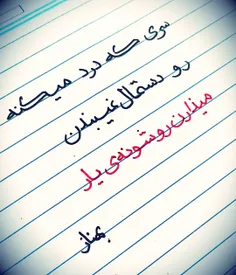 سری که درد میکنه
رو دستمال نمیبندن
میذارن رو شونه‌ی یار
بهناز